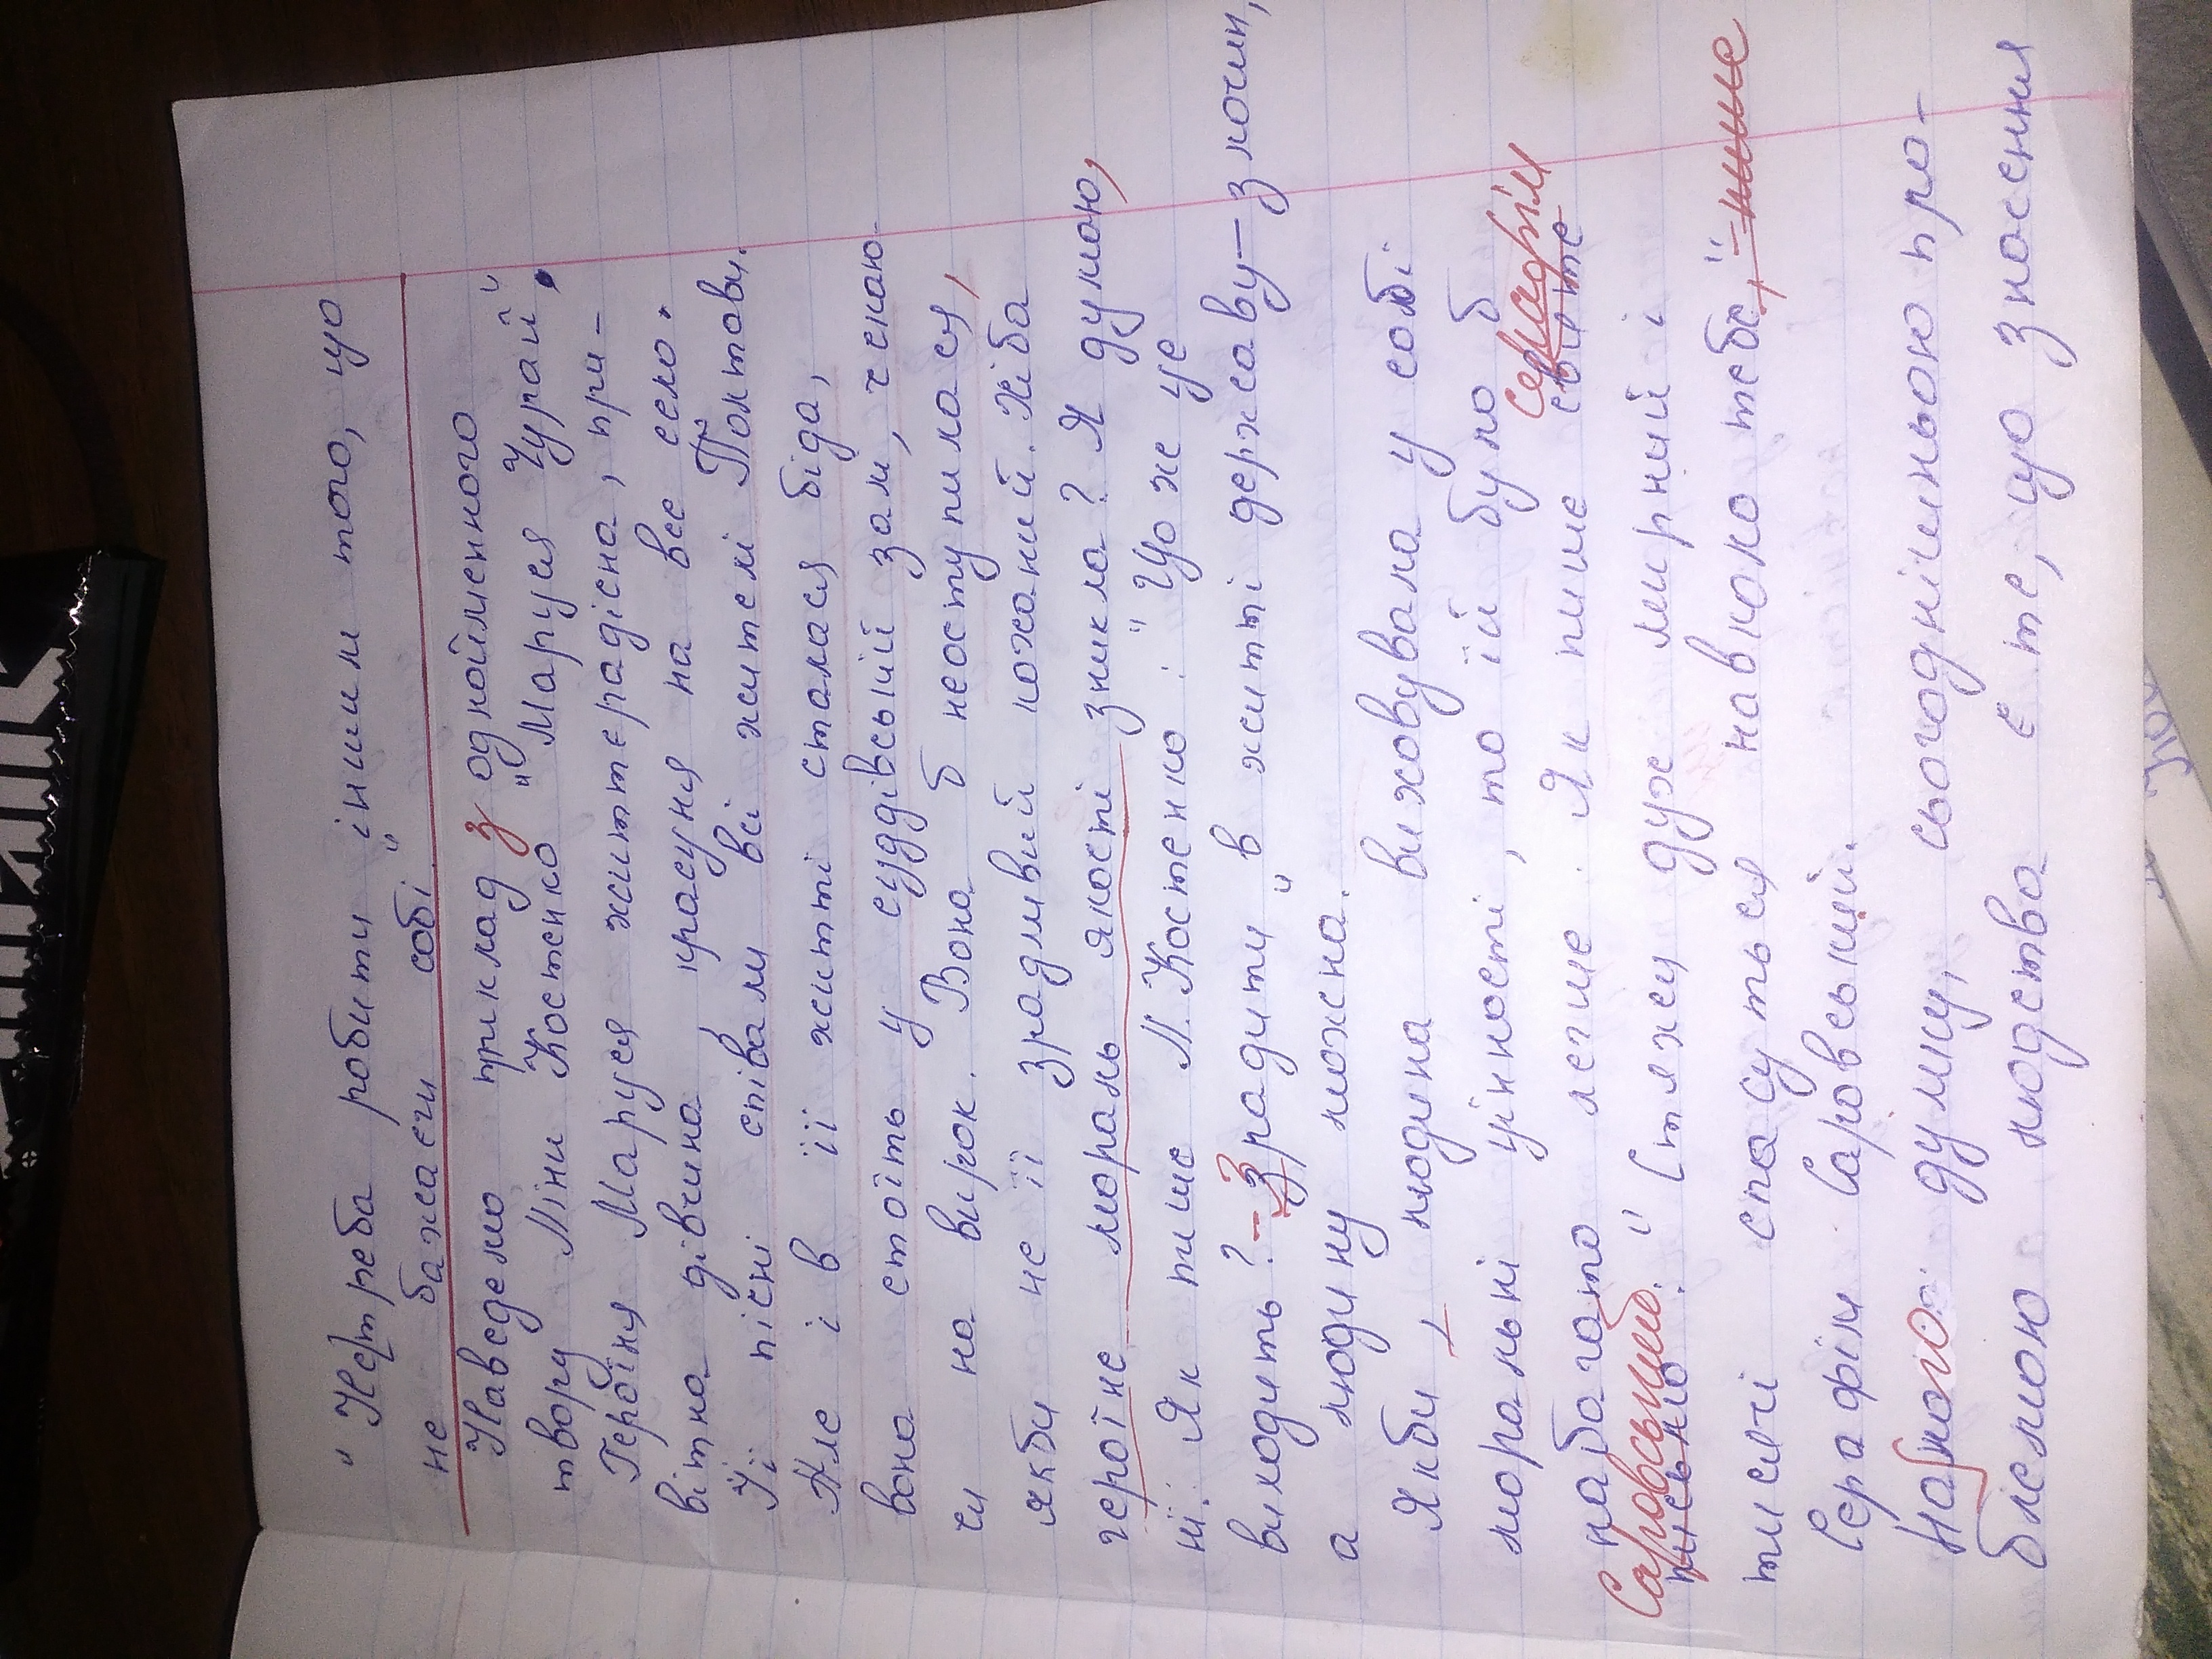 " Нетреба робити „іншим того, що
не бажаєш собі
Наведемо приклад з однойменного
твору Ліни Костенко „Маруся Чурай".
Героїня Маруся життєрадісна, при-
вітна дівчина, красуня на все село.
Її пісні співали всі жителі Полтави.
Але і в її житті сталася біда,
вона стоїть у суддівський зам, чекаю-
чи на вирок. Вона б неоступилася,
якби не її зрадливий коханий. Хіба
героїне мораль якості зникла? Я думаю,
ні. Як пише Л. Костенко: " Що же це
виходить? - Зрадити " в житті державу — злочин,
а людину можна.
Якби, людина виховувала у собі
моральні цінності, то їй було б
набагато легше. Як пише святе Серафім
письмо: Саровський. " Стяжи дух мирний і
тисячі спасуться навколо тебе," - пише
Серафім Саровський.
На мою думку, сьогоднішньою про-
блемою людства є те, що знесення